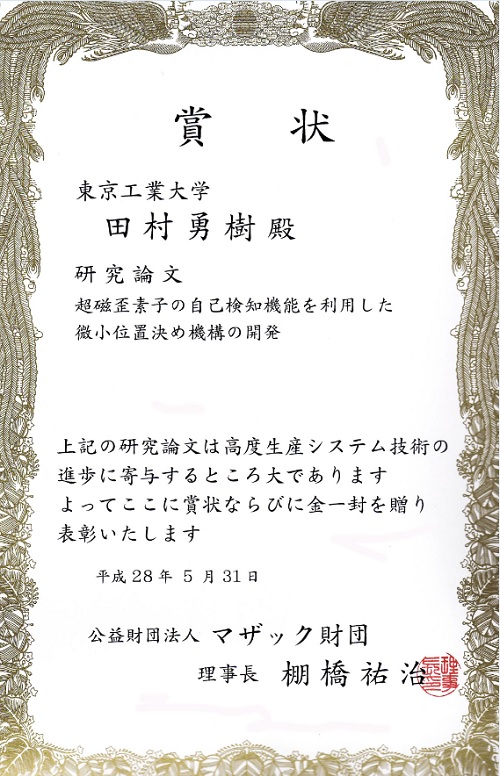 賞状
東京工業大学
田村勇樹殿
研究論文
超磁歪素子の自己検知機能を利用した
微小位置決め機構の開発
上記の研究論文は高度生産システム技術の
進歩に寄与するところ大であります
よってここに賞状ならびに金一封を贈り
表彰いたします
平成28年5月31日
公益財団法人 マザック財団
理事長 棚橋祐治